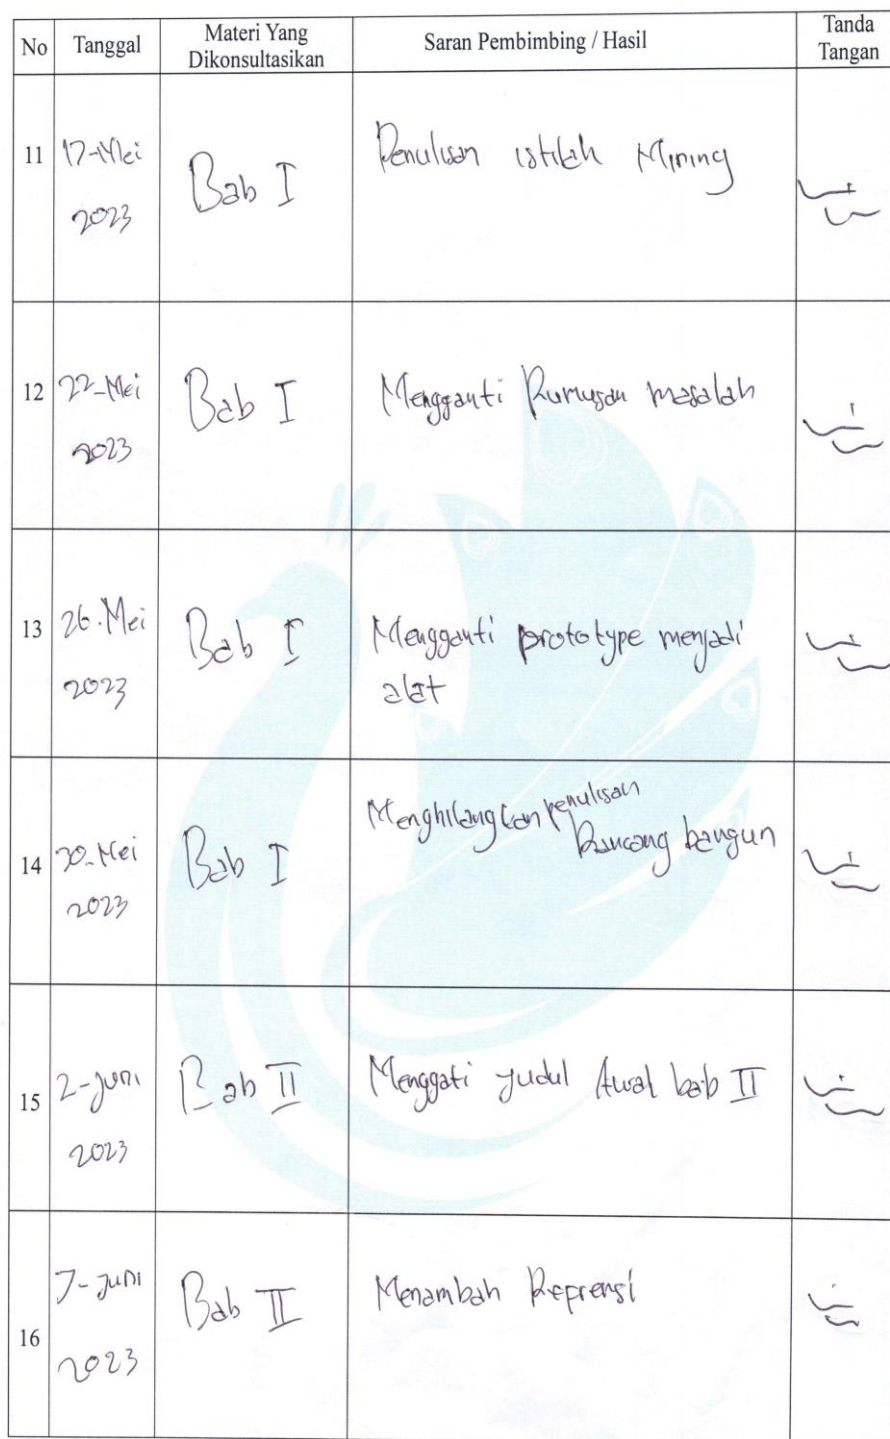 No Tanggal Materi Yang Dikonsultasikan Saran Pembimbing / Hasil Tanda Tangan
11 17-Mei 2023 Bab I Penulisan istilah Mining
12 22-Mei 2023 Bab I Mengganti Rumusan masalah
13 26-Mei 2023 Bab I Mengganti prototype menjadi alat
14 30-Mei 2023 Bab I Menghilangkan penulisan Rancang bangun
15 2-Juni 2023 Bab II Menggati judul Awal bab II
16 7-Juni 2023 Bab II Menambah Reprensi